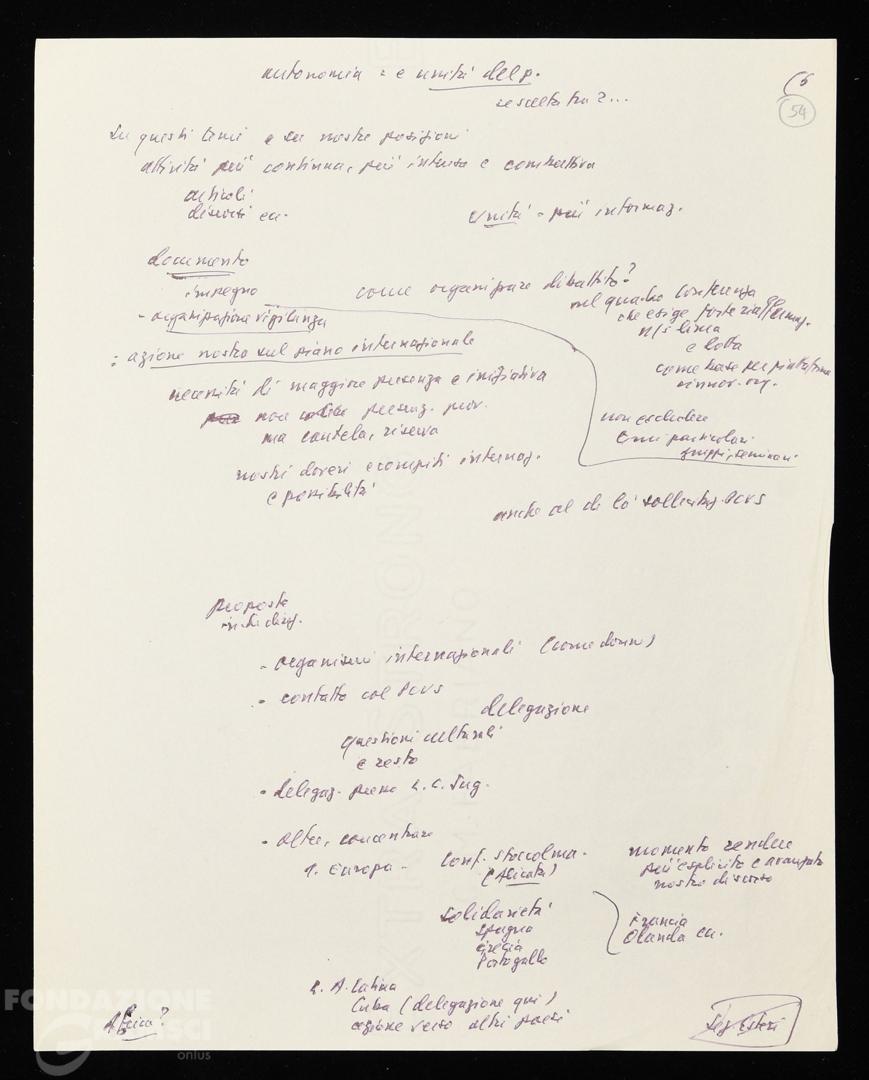 autonomia = e unità del p.
(6
54
su questi temi e su nostre posizioni
attività più continua, più intensa e combattiva
articoli
discorsi ecc.
Unità = più informaz.
documento
impegno
come organizzare dibattito?
nel quadro Conferenza
che esige forte riaffermaz.
n/s linea
e lotta
come base per
rinnov. org.
- organizzazione vigilanza
: azione nostra sul piano internazionale
necessità di maggiore presenza e iniziativa
non presenz. prov.
ma cautela, riserva
non escludere
temi particolari
gruppi, seminari
nostri doveri e compiti internaz.
e possibilità
anche al di là sollecitaz. PCUS
proposta
- organismi internazionali (come donne)
- contatto col PCUS
delegazione
questioni culturali
e resto
- delegaz. presso L.C. Jug.
- oltre, concentrare
1. Europa -
Conf. Stoccolma -
(Alicata)
momento rendere
più esplicito e avanzato
nostro discorso
solidarietà
Spagna
Grecia
Portogallo
Francia
Olanda ecc.
2. A. Latina
Cuba (delegazione qui)
azione verso altri paesi
Africa?
Sez. Esteri
FONDAZIONE
GRAMSCI
onlus